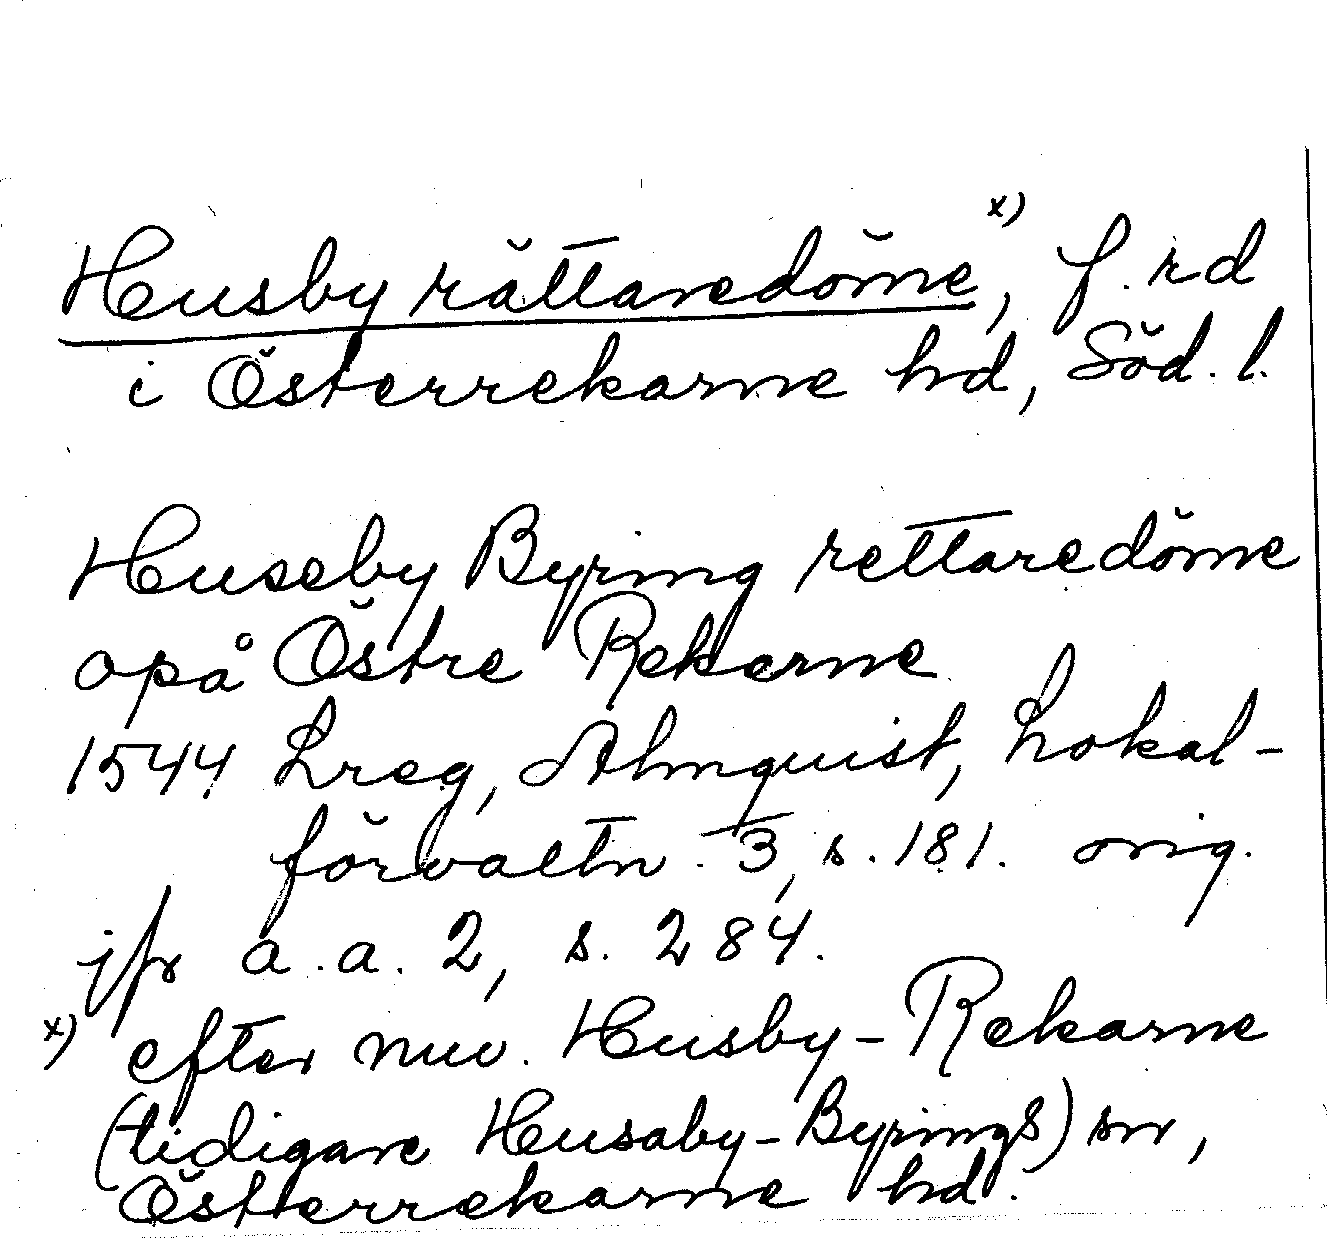 Husby rättaredöme x), f. rd
i Österrekarne hd, Söd. l.
Huseby Byring rettaredöme
opå Östre Rekarne
1544 Lreg, Almquist, Lokal-
förvaltn. 3, s. 181. orig.
jfr a.a. 2, s. 284.
x) efter nuv. Husby-Rekarne
(tidigare Husaby-Byrings) sn,
Österrekarne hd.